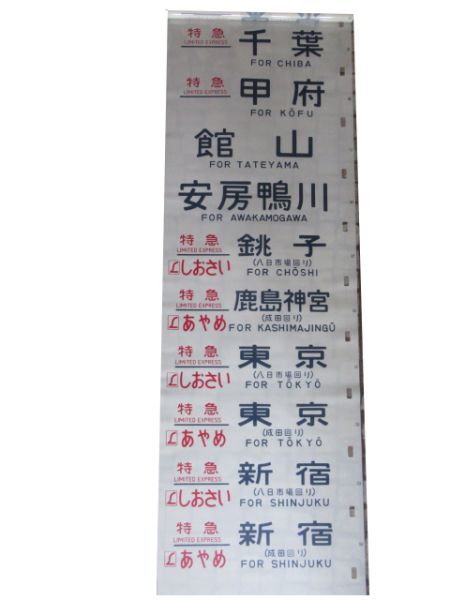 特急 千葉
LIMITED EXPRESS
FOR CHIBA
特急 甲府
LIMITED EXPRESS
FOR KŌFU
館山
FOR TATEYAMA
安房鴨川
FOR AWAKAMOGAWA
特急 銚子
LIMITED EXPRESS
(八日市場回り)
しおさい FOR CHŌSHI
特急 鹿島神宮
LIMITED EXPRESS
(成田回り)
あやめ FOR KASHIMAJINGŪ
特急 東京
LIMITED EXPRESS
(八日市場回り)
しおさい FOR TŌKYŌ
特急 東京
LIMITED EXPRESS
(成田回り)
あやめ FOR TŌKYŌ
特急 新宿
LIMITED EXPRESS
(八日市場回り)
しおさい FOR SHINJUKU
特急 新宿
LIMITED EXPRESS
(成田回り)
あやめ FOR SHINJUKU